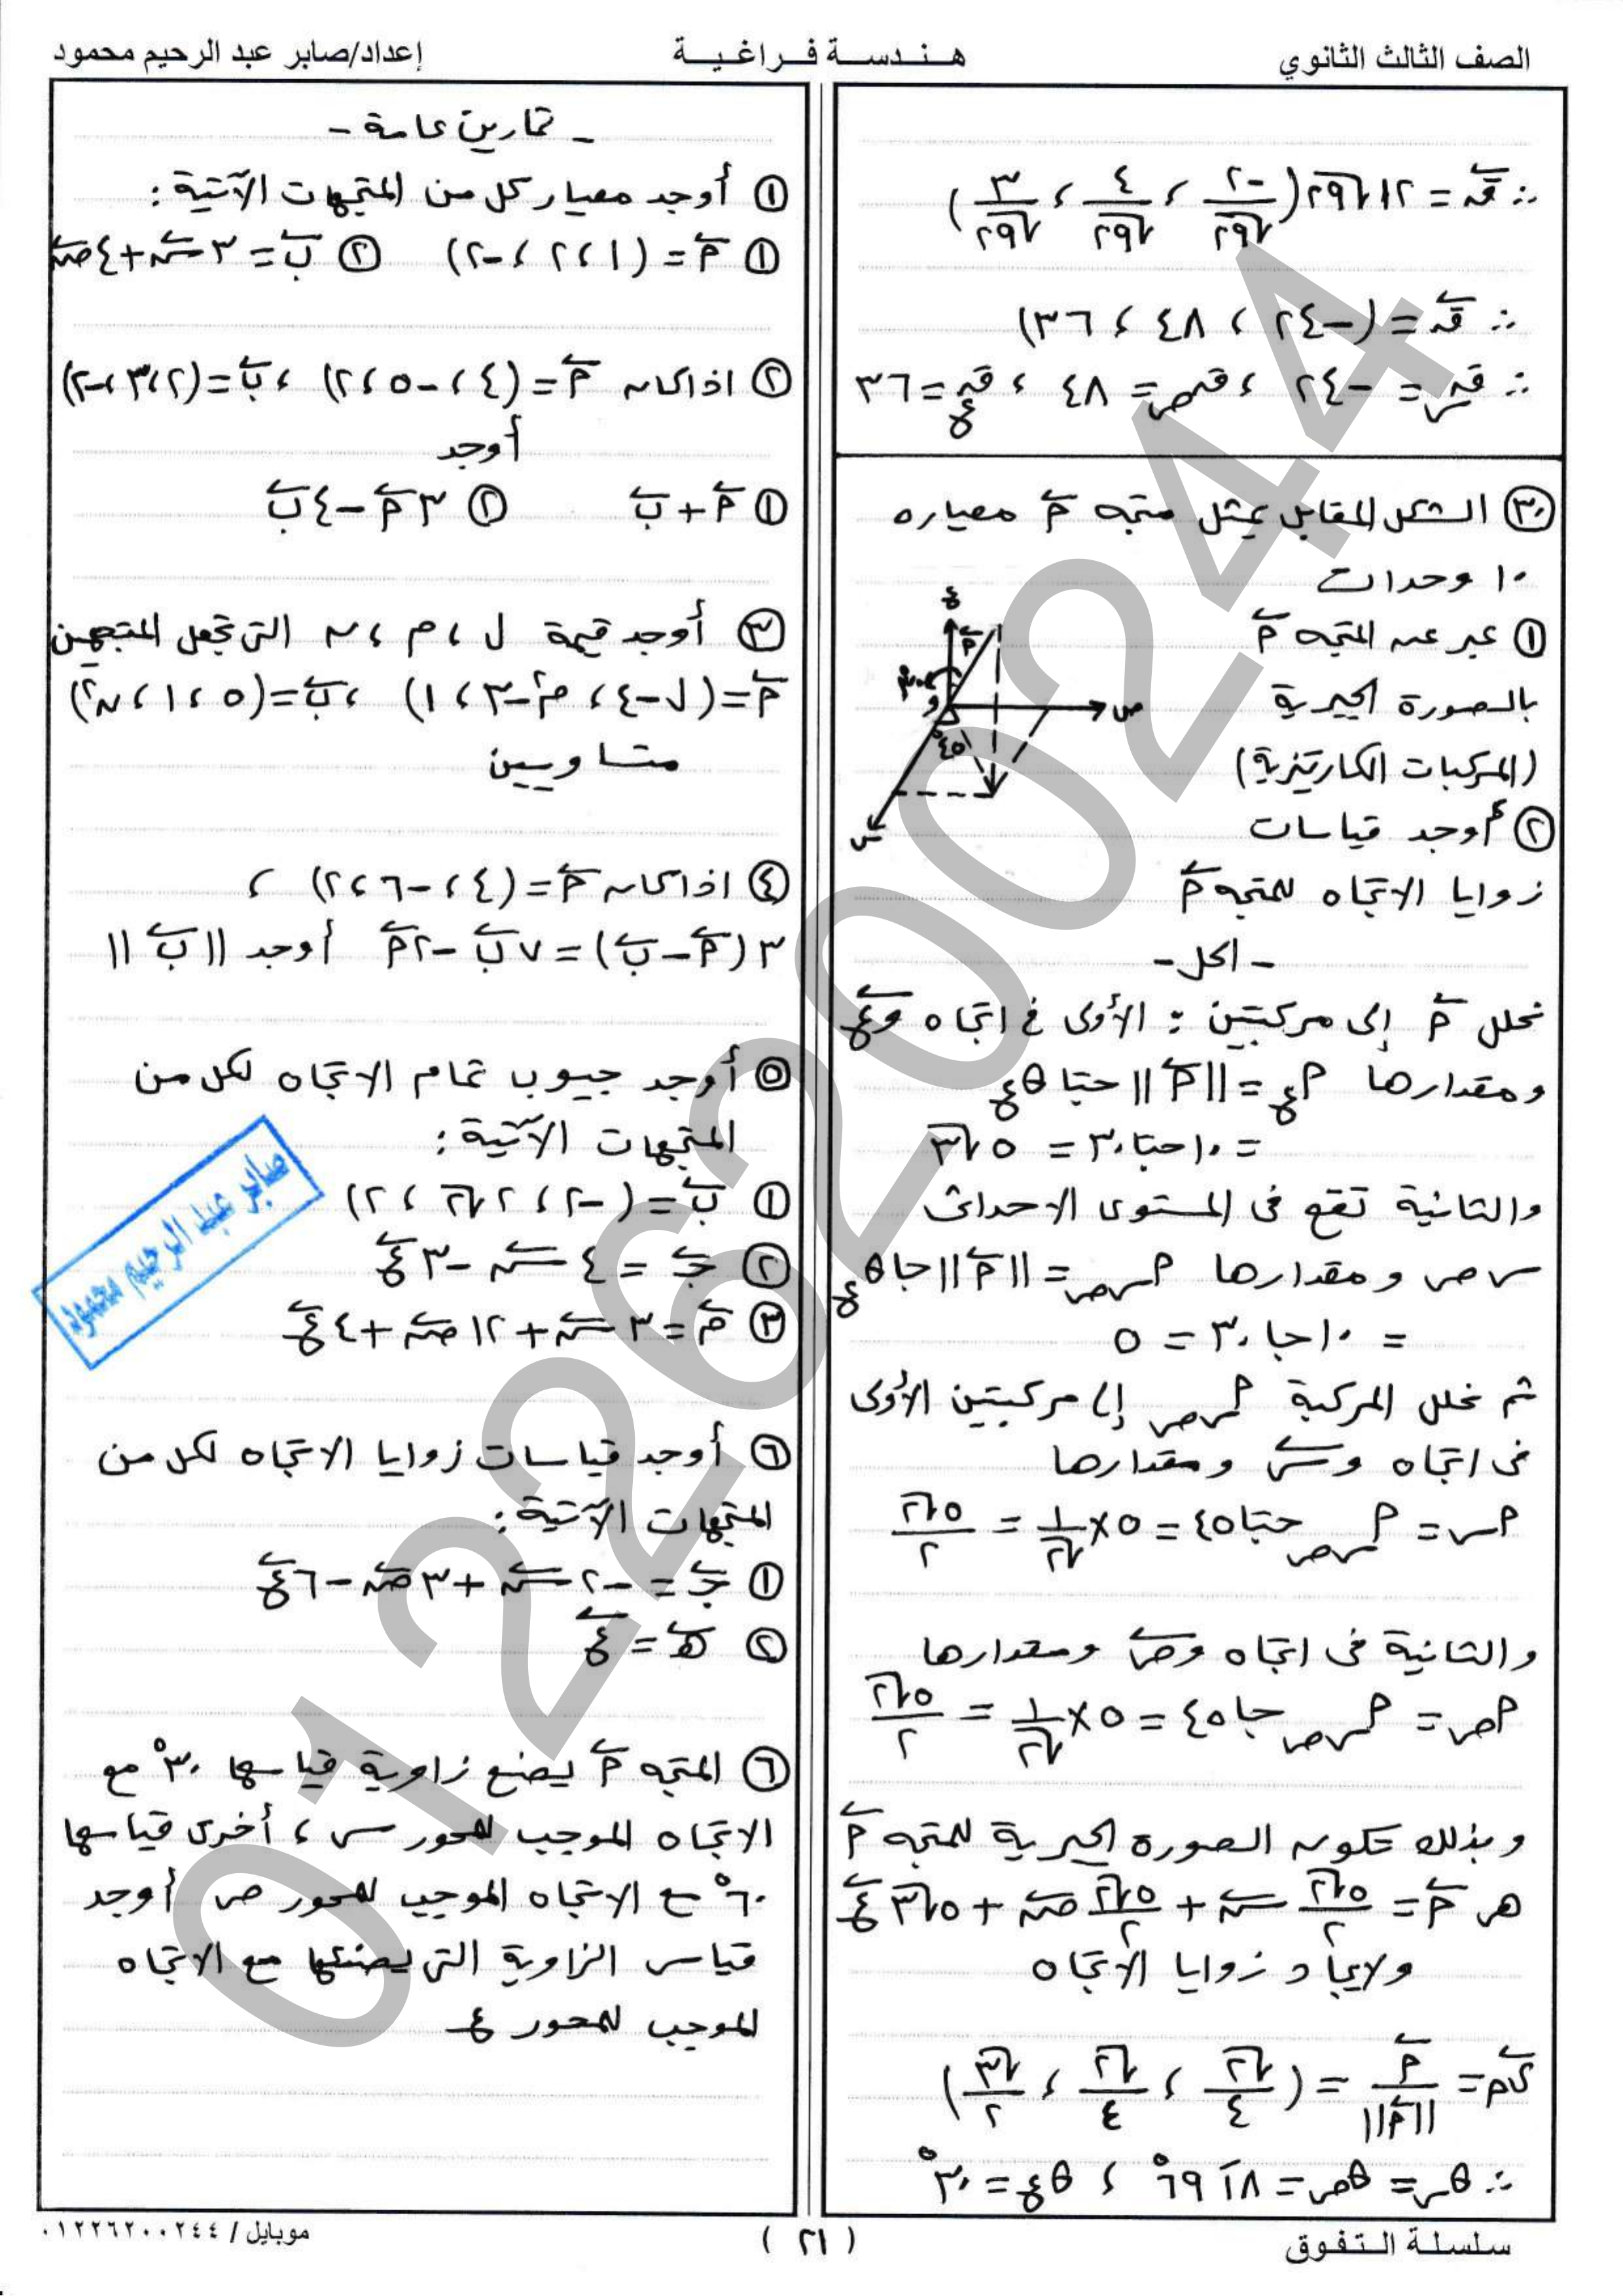 الصف الثالث الثانوي
هندسة فراغية
إعداد/صابر عبد الرحيم محمود
∴ ق⃗ = ١٢√٢٩ (−٢/√٢٩ ، ٤/√٢٩ ، ٣/√٢٩)
∴ ق⃗ = (−٢٤ ، ٤٨ ، ٣٦)
∴ قس = −٢٤ ، قص = ٤٨ ، قع = ٣٦
(٣٠) الشكل المقابل يمثل متجه م⃗ معياره
١٠ وحدات
(١) عبر عن المتجه م⃗
بالصورة الجبرية
(المركبات الكارتيزية)
(٢) أوجد قياسات
زوايا الاتجاه للمتجه م⃗
ع
م⃗
٣٠°
و
ص
٤٥°
س
- الحل -
نحلل م⃗ إلى مركبتين : الأولى فى اتجاه وع⃗
ومقدارها مع = ||م⃗|| حتا θع
= ١٠ حتا ٣٠ = ٥√٣
والثانية تقع فى المستوى الاحداثى
س ص ومقدارها مس ص = ||م⃗|| حا θع
= ١٠ حا ٣٠ = ٥
ثم نحلل المركبة مس ص إلى مركبتين الأولى
فى اتجاه وس⃗ ومقدارها
مس = مس ص حتا ٤٥ = ٥ × ١/√٢ = ٥√٢/٢
والثانية فى اتجاه وص⃗ ومقدارها
مص = مس ص حا ٤٥ = ٥ × ١/√٢ = ٥√٢/٢
وبذلك تكون الصورة الجبرية للمتجه م⃗
هى م⃗ = ٥√٢/٢ س⃗ + ٥√٢/٢ ص⃗ + ٥√٣ ع⃗
ولايجاد زوايا الاتجاه
ى⃗م = م⃗/||م⃗|| = (√٢/٤ ، √٢/٤ ، √٣/٢)
∴ θس = θص = ١٨َ ٦٩° ، θع = ٣٠°
- تمارين عامة -
(١) أوجد معيار كل من المتجهات الآتية :
(١) م⃗ = (١ ، ٢ ، −٢) (٢) ب⃗ = ٣ س⃗ + ٤ ص⃗
(٢) اذا كان م⃗ = (٤ ، −٥ ، ٢) ، ب⃗ = (٢ ، ٣ ، −٢)
أوجد
(١) م⃗ + ب⃗ (٢) ٣م⃗ − ٤ب⃗
(٣) أوجد قيمة ل ، م ، ن التى تجعل المتجهين
م⃗ = (ل−٤ ، م²−٣ ، ١) ، ب⃗ = (٥ ، ١ ، ن²)
متساويين
(٤) اذا كان م⃗ = (٤ ، −٦ ، ٢) ،
٣(م⃗ − ب⃗) = ٧ب⃗ − ٢م⃗ أوجد ||ب⃗||
(٥) أوجد جيوب تمام الاتجاه لكل من
المتجهات الآتية :
(١) ب⃗ = (−٢ ، ٢√٢ ، ٢)
(٢) ج⃗ = ٤ س⃗ − ٣ ع⃗
(٣) م⃗ = ٣ س⃗ + ١٢ ص⃗ + ٤ ع⃗
صابر عبد الرحيم محمود
(٦) أوجد قياسات زوايا الاتجاه لكل من
المتجهات الآتية :
(١) ج⃗ = −٢ س⃗ + ٣ ص⃗ − ٦ ع⃗
(٢) ه⃗ = ع⃗
(٦) المتجه م⃗ يصنع زاوية قياسها ٣٠° مع
الاتجاه الموجب للمحور س ، أخرى قياسها
٦٠° مع الاتجاه الموجب للمحور ص أوجد
قياس الزاوية التى يصنعها مع الاتجاه
الموجب للمحور ع
01226200244
سلسلة التفوق
( ٢١ )
موبايل / ٠١٢٢٦٢٠٠٢٤٤